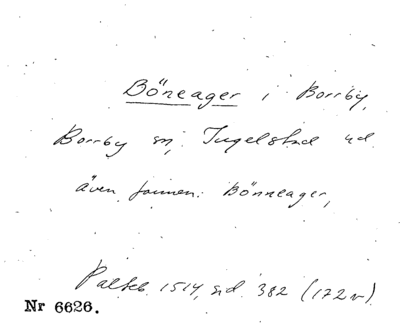 Böneager i Borrby,
Borrby sn, Ingelstad hd
även formen: Bönneager,
Palteb. 1514, sid. 382 (172v).
Nr 6626.